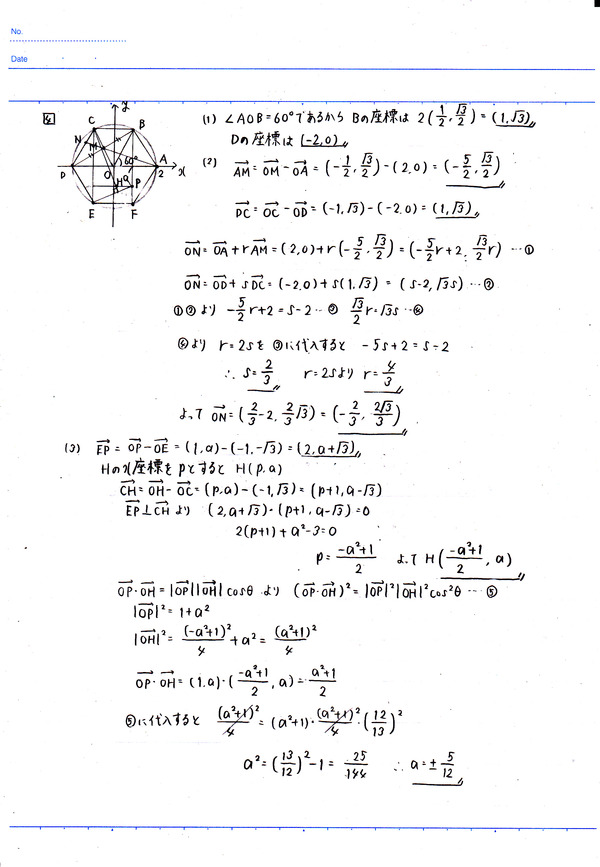 No.
Date
4
(1) ∠AOB=60°であるから Bの座標は 2(1/2, √3/2)=(1,√3)
Dの座標は(-2,0)
(2) AM=OM-OA=(-1/2, √3/2)-(2,0)=(-5/2, √3/2)
DC=OC-OD=(-1,√3)-(-2,0)=(1,√3)
ON=OA+rAM=(2,0)+r(-5/2, √3/2)=(-5/2r+2, √3/2r) …①
ON=OD+sDC=(-2,0)+s(1,√3)=(s-2,√3s) …②
①②より -5/2r+2=s-2 …③ √3/2r=√3s …④
④より r=2sを③に代入すると -5s+2=s-2
∴ s=2/3 r=2sより r=4/3
よって ON=(2/3-2, 2/3√3)=(-2/3, 2√3/3)
(3) EP=OP-OE=(1,a)-(-1,-√3)=(2,a+√3)
Hのx座標をpとすると H(p,a)
CH=OH-OC=(p,a)-(-1,√3)=(p+1,a-√3)
EP⊥CHより (2,a+√3)・(p+1,a-√3)=0
2(p+1)+a²-3=0
p=-a²+1/2 よって H(-a²+1/2, a)
OP・OH=|OP||OH|cosθ より (OP・OH)²=|OP|²|OH|²cos²θ …⑤
|OP|²=1+a²
|OH|²=(-a²+1)²/4+a²=(a²+1)²/4
OP・OH=(1,a)・(-a²+1/2, a)=a²+1/2
⑤に代入すると (a²+1)²/4=(a²+1)・(a²+1)²/4・(12/13)²
a²=(13/12)²-1=25/144 ∴ a=±5/12
y
C
B
N
M
60°
A
D
O
2
x
H
a
P
E
F